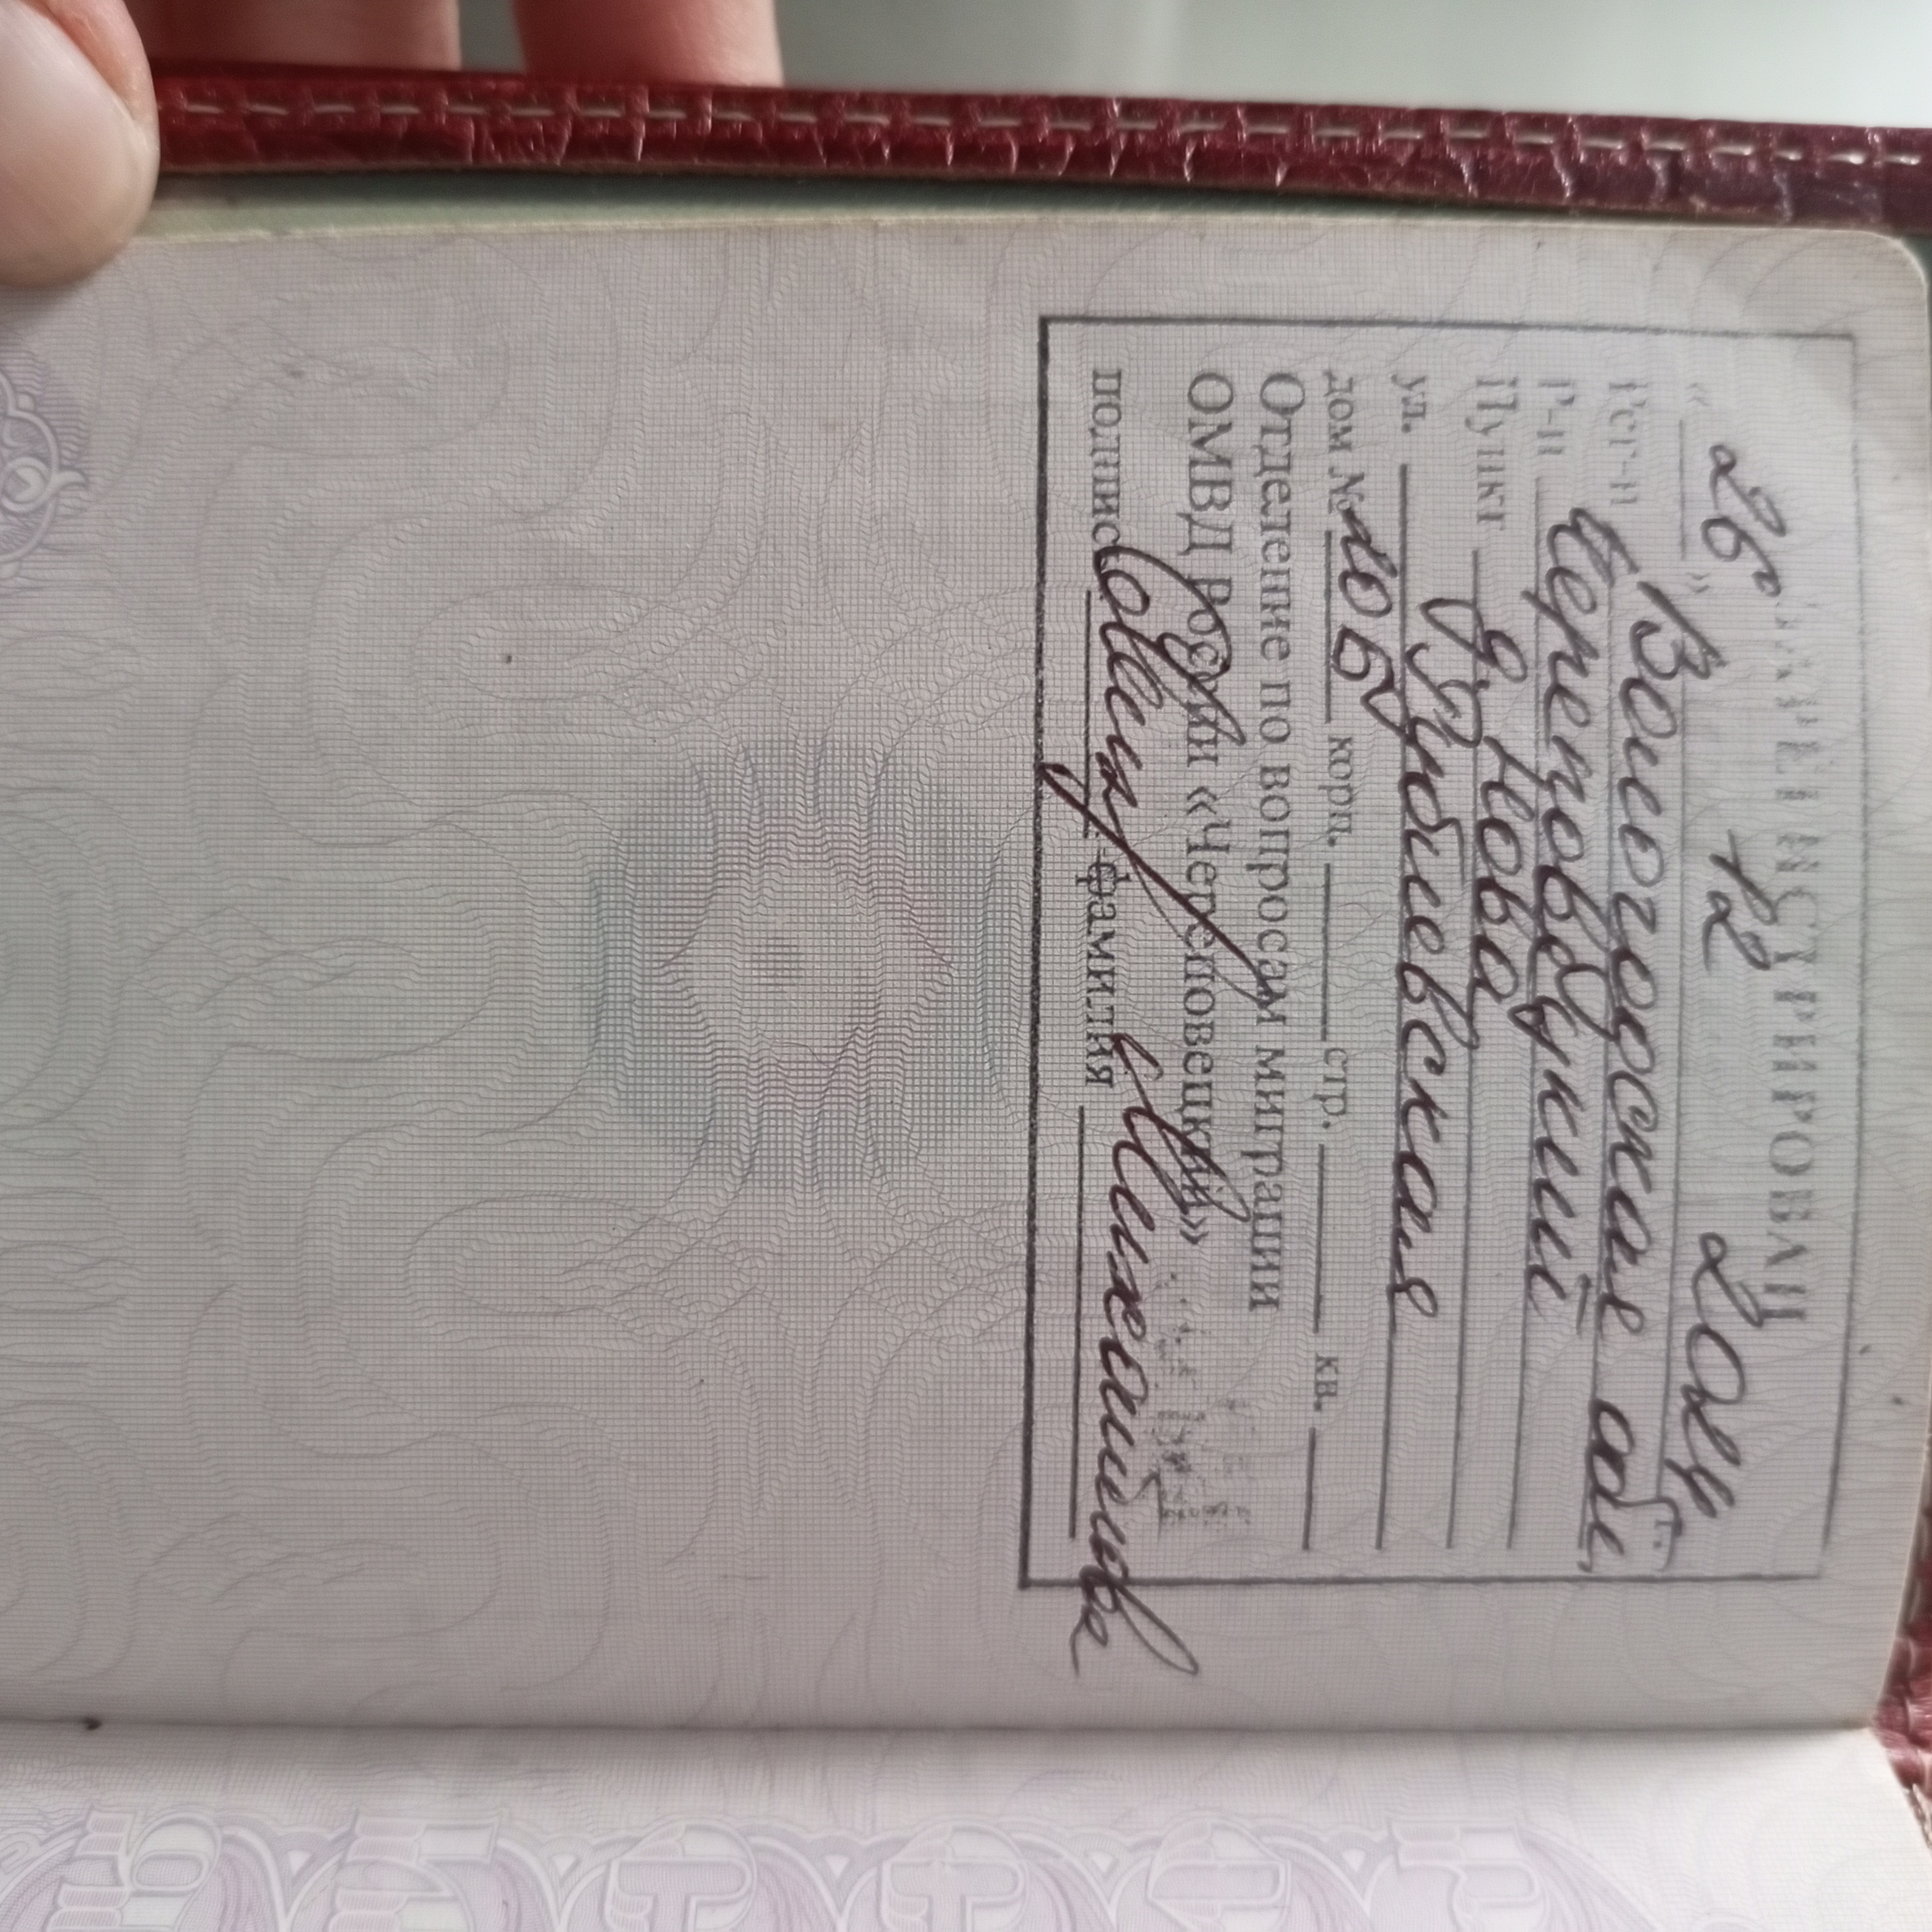 ЗАРЕГИСТРИРОВАН
«26» 12 2024 г.
Рег-н Вологодская обл,
Р-н Череповецкий
Пункт д. Ясная
ул.
дом № 20 Б корп. стр. кв.
Отделение по вопросам миграции
ОМВД России «Череповецкий»
подпись фамилия